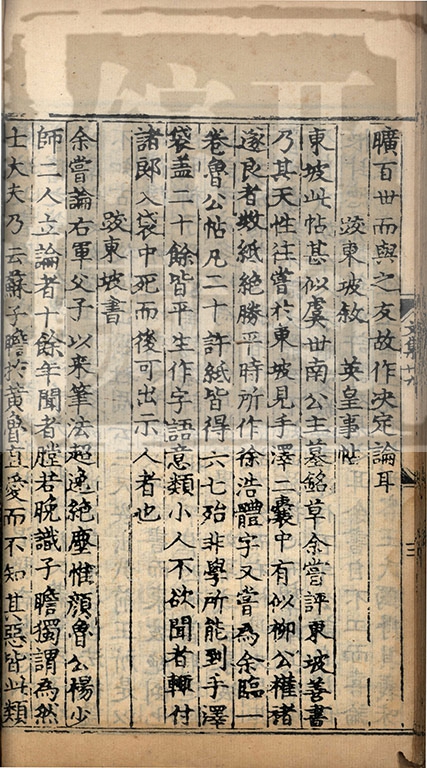 曠百丗而與之友故作决定論耳
跋東坡敘　英皇事帖
東坡此帖甚似虞丗南公主墓銘草余嘗評東坡善書
乃其天性往嘗於東坡見手澤二囊中有似柳公權褚
遂良者數紙絶勝平時所作徐浩體字又嘗為余臨一
卷魯公帖凡二十許紙皆得六七殆非學所能到手澤
袋盖二十餘皆平生作字語意類小人不欲聞者輙付
諸郎入袋中死而後可出示人者也
跋東坡書
余嘗論右軍父子以来筆法超逸絶塵惟顔魯公楊少
師二人立論者十餘年聞者瞠若晚識子瞻獨謂為然
士大夫乃云蘇子瞻於黄魯直愛而不知其惡皆此類